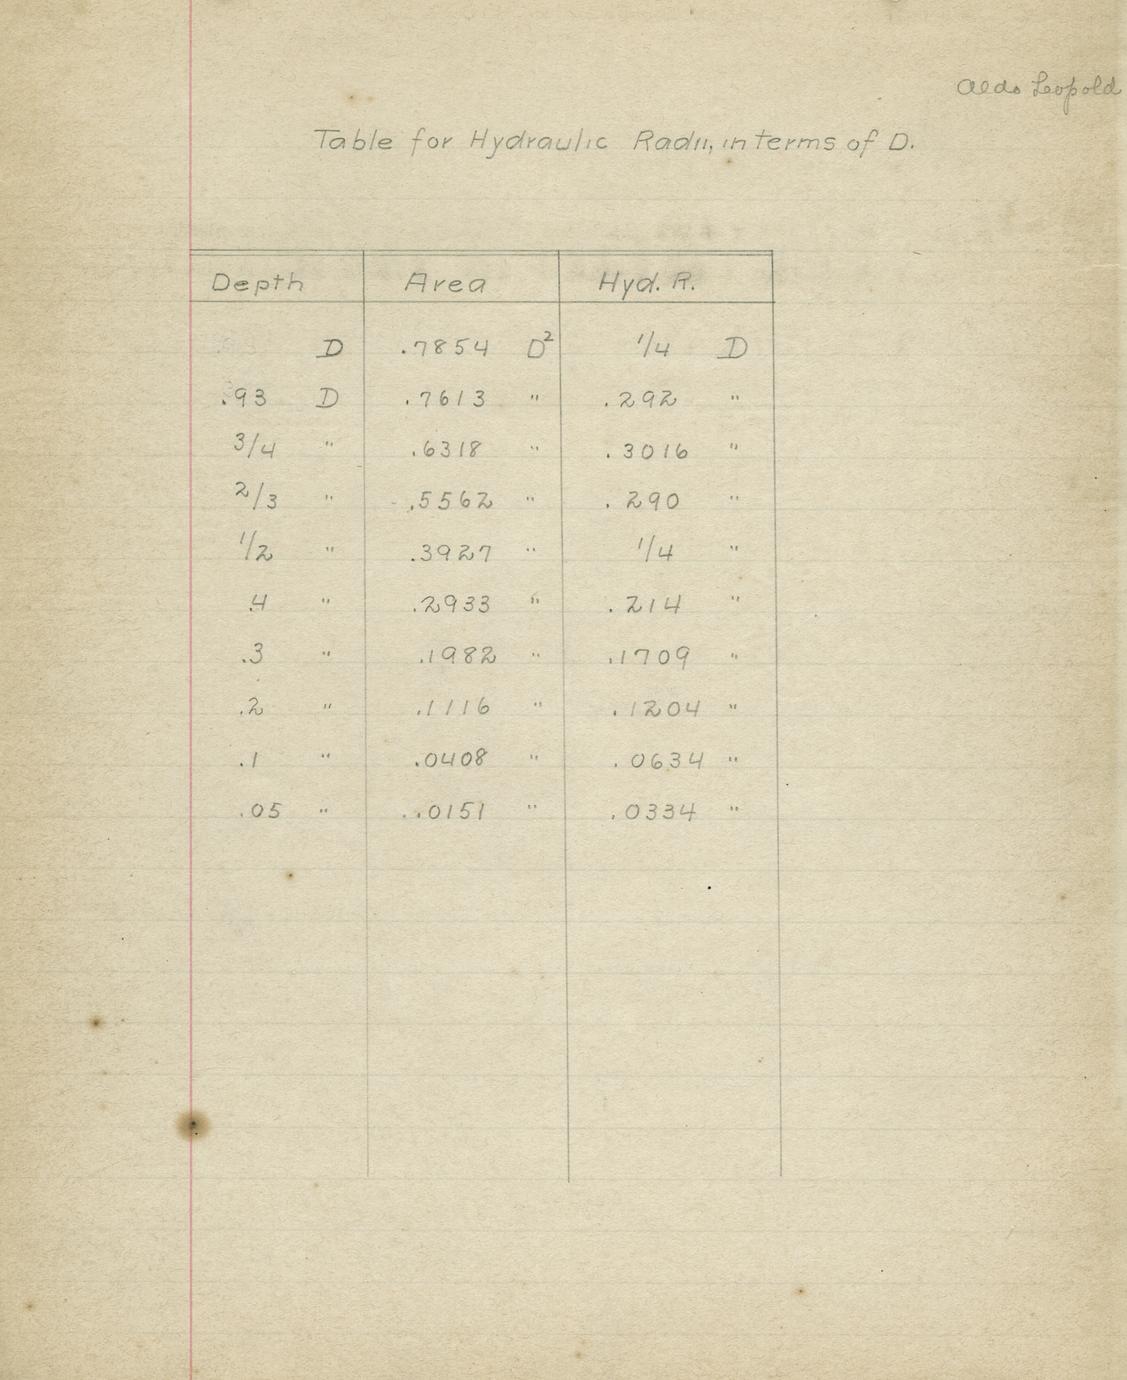 Aldo Leopold
Table for Hydraulic Radii, in terms of D.
Depth Area Hyd. R.
D .7854 D² 1/4 D
.93 D .7613 " .292 "
3/4 " .6318 " .3016 "
2/3 " .5562 " .290 "
1/2 " .3927 " 1/4 "
.4 " .2933 " .214 "
.3 " .1982 " .1709 "
.2 " .1116 " .1204 "
.1 " .0408 " .0634 "
.05 " .0151 " .0334 "